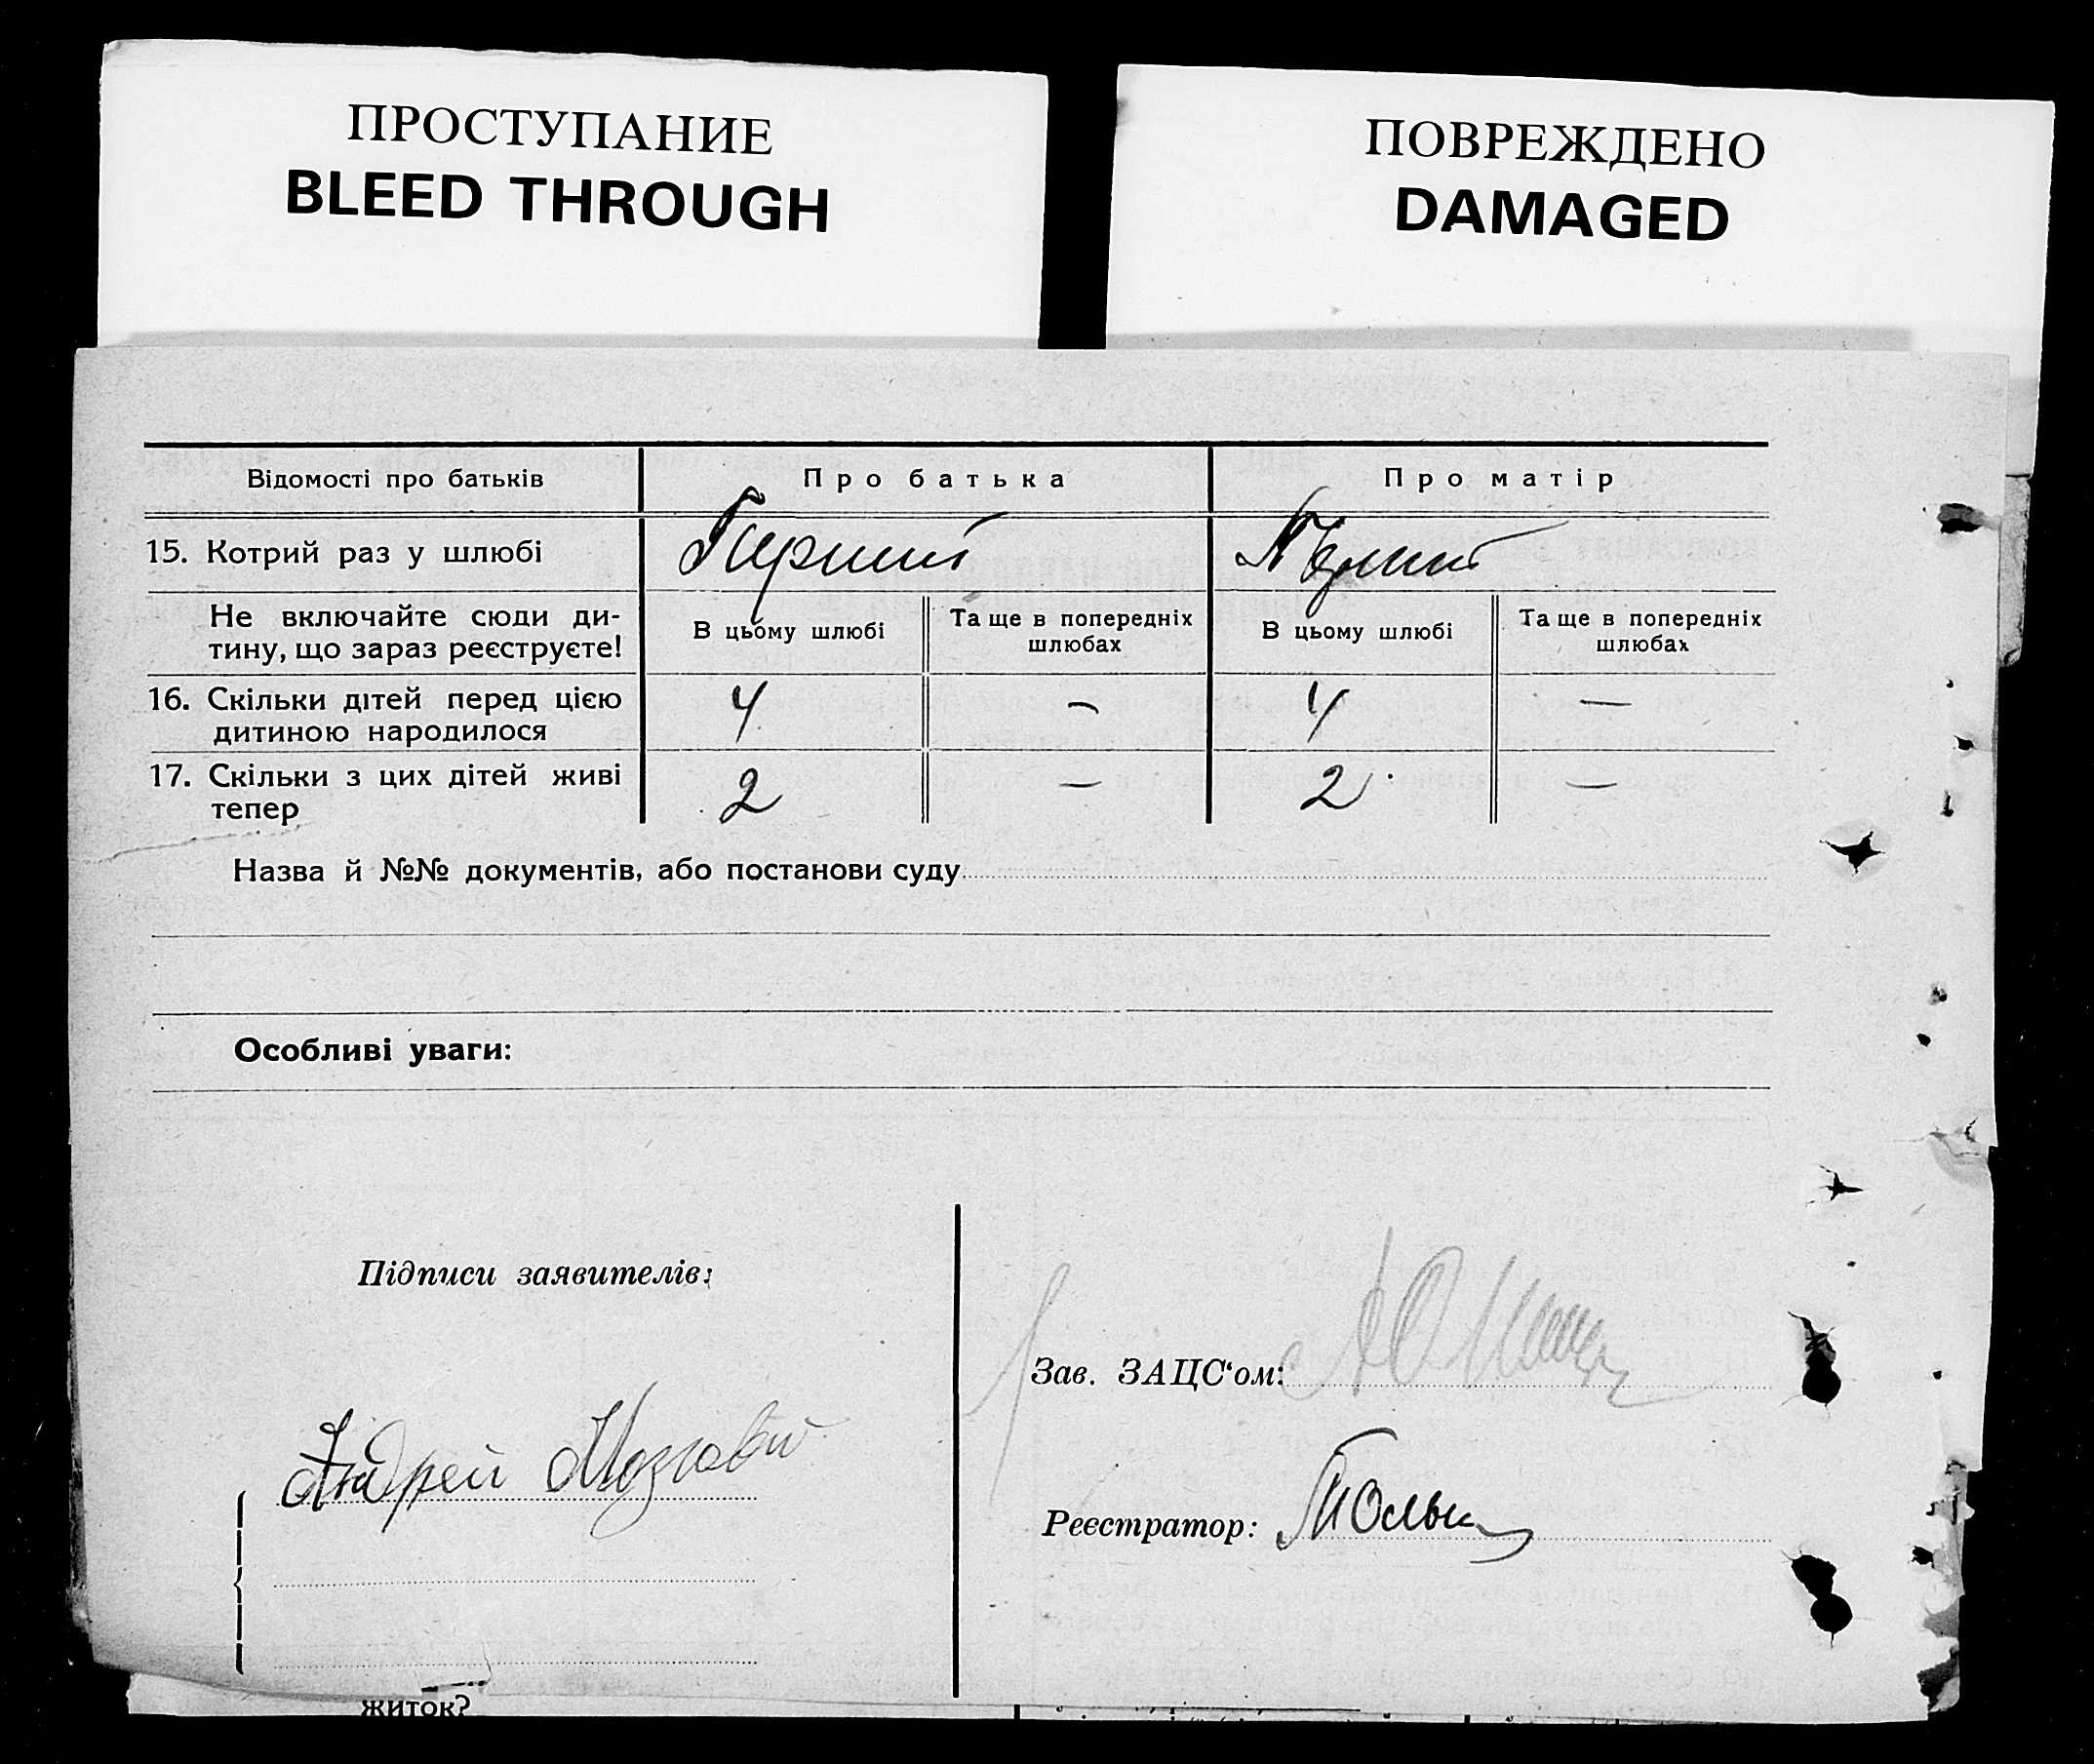 ПРОСТУПАНИЕ
BLEED THROUGH
ПОВРЕЖДЕНО
DAMAGED
Відомості про батьків
Про батька
Про матір
15. Котрий раз у шлюбі
Перший
Перший
Не включайте сюди ди-
тину, що зараз реєструєте!
В цьому шлюбі
Та ще в попередніх
шлюбах
В цьому шлюбі
Та ще в попередніх
шлюбах
16. Скільки дітей перед цією
дитиною народилося
4
—
4
—
17. Скільки з цих дітей живі
тепер
2
—
2
—
Назва й №№ документів, або постанови суду
Особливі уваги:
Підписи заявителів:
Андрей Мозговий
Зав. ЗАЦС‘ом:
Реєстратор:
житок?